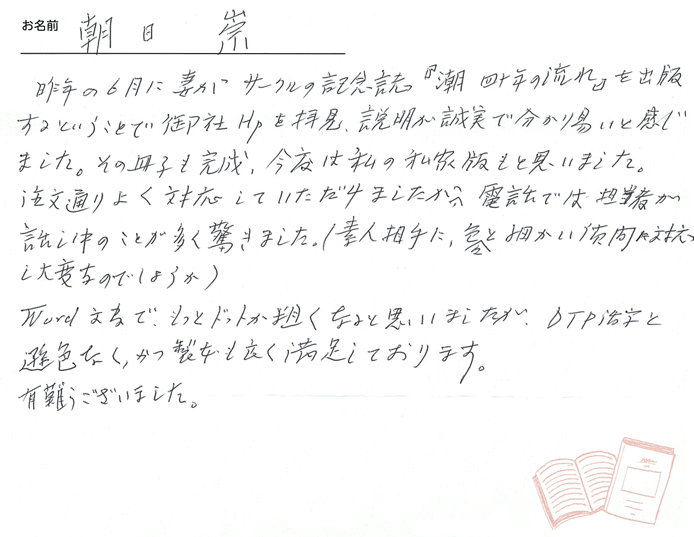 お名前 朝日 崇
昨年の6月に妻がサークルの記念誌『潮 四十年の流れ』を出版
するということで御社Hpを拝見、説明が誠実で分かり易いと感じ
ました。その冊子も完成、今度は私の私家版もと思いました。
注文通りよく対応していただけましたが、電話では担当者が
話し中のことが多く驚きました。(素人相手に、色々細かい質問に対応
し大変なのでしょうか)
Word文書で、もっとドットが粗くなると思いましたが、DTP活字と
遜色なく、かつ製本も広く満足しております。
有難うございました。